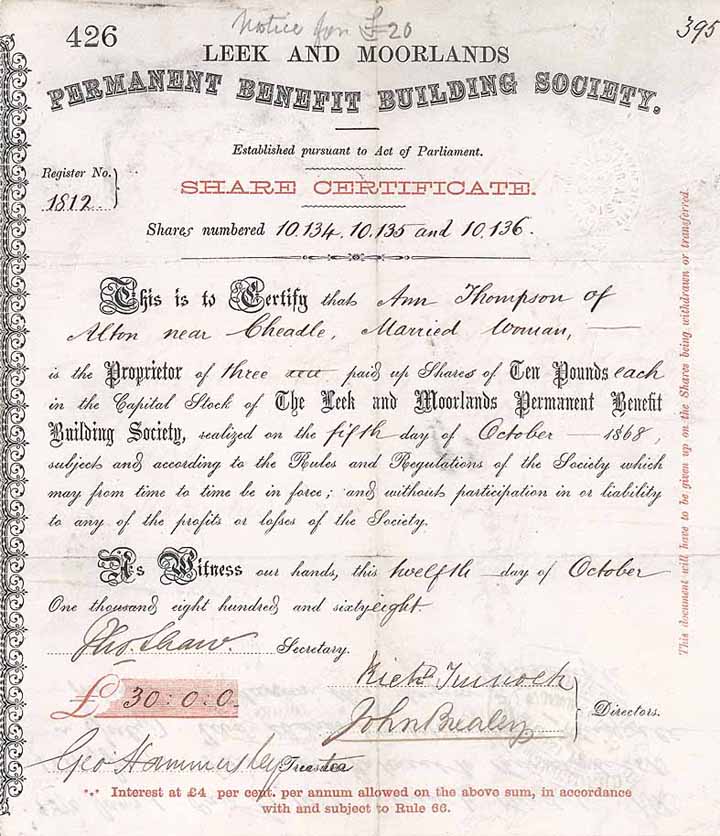 Notice for £20
426
395
LEEK AND MOORLANDS
PERMANENT BENEFIT BUILDING SOCIETY.
Established pursuant to Act of Parliament.
Register No.
1812
SHARE CERTIFICATE.
Shares numbered 10.134. 10.135 and 10.136.
This is to Certify that Ann Thompson of
Alton near Cheadle, Married Woman,
is the Proprietor of three paid up Shares of Ten Pounds each
in the Capital Stock of The Leek and Moorlands Permanent Benefit
Building Society, realized on the fifth day of October 1868,
subject and according to the Rules and Regulations of the Society which
may from time to time be in force; and without participation in or liability
to any of the profits or losses of the Society.
As Witness our hands, this twelfth day of October
One thousand eight hundred and sixty eight
Jno. Shaw. Secretary.
£30:0:0
Richd
John Brealey
Directors.
Geo Hammersley
Interest at £4 per cent. per annum allowed on the above sum, in accordance
with and subject to Rule 66.
This document will have to be given up on the Shares being withdrawn or transferred.